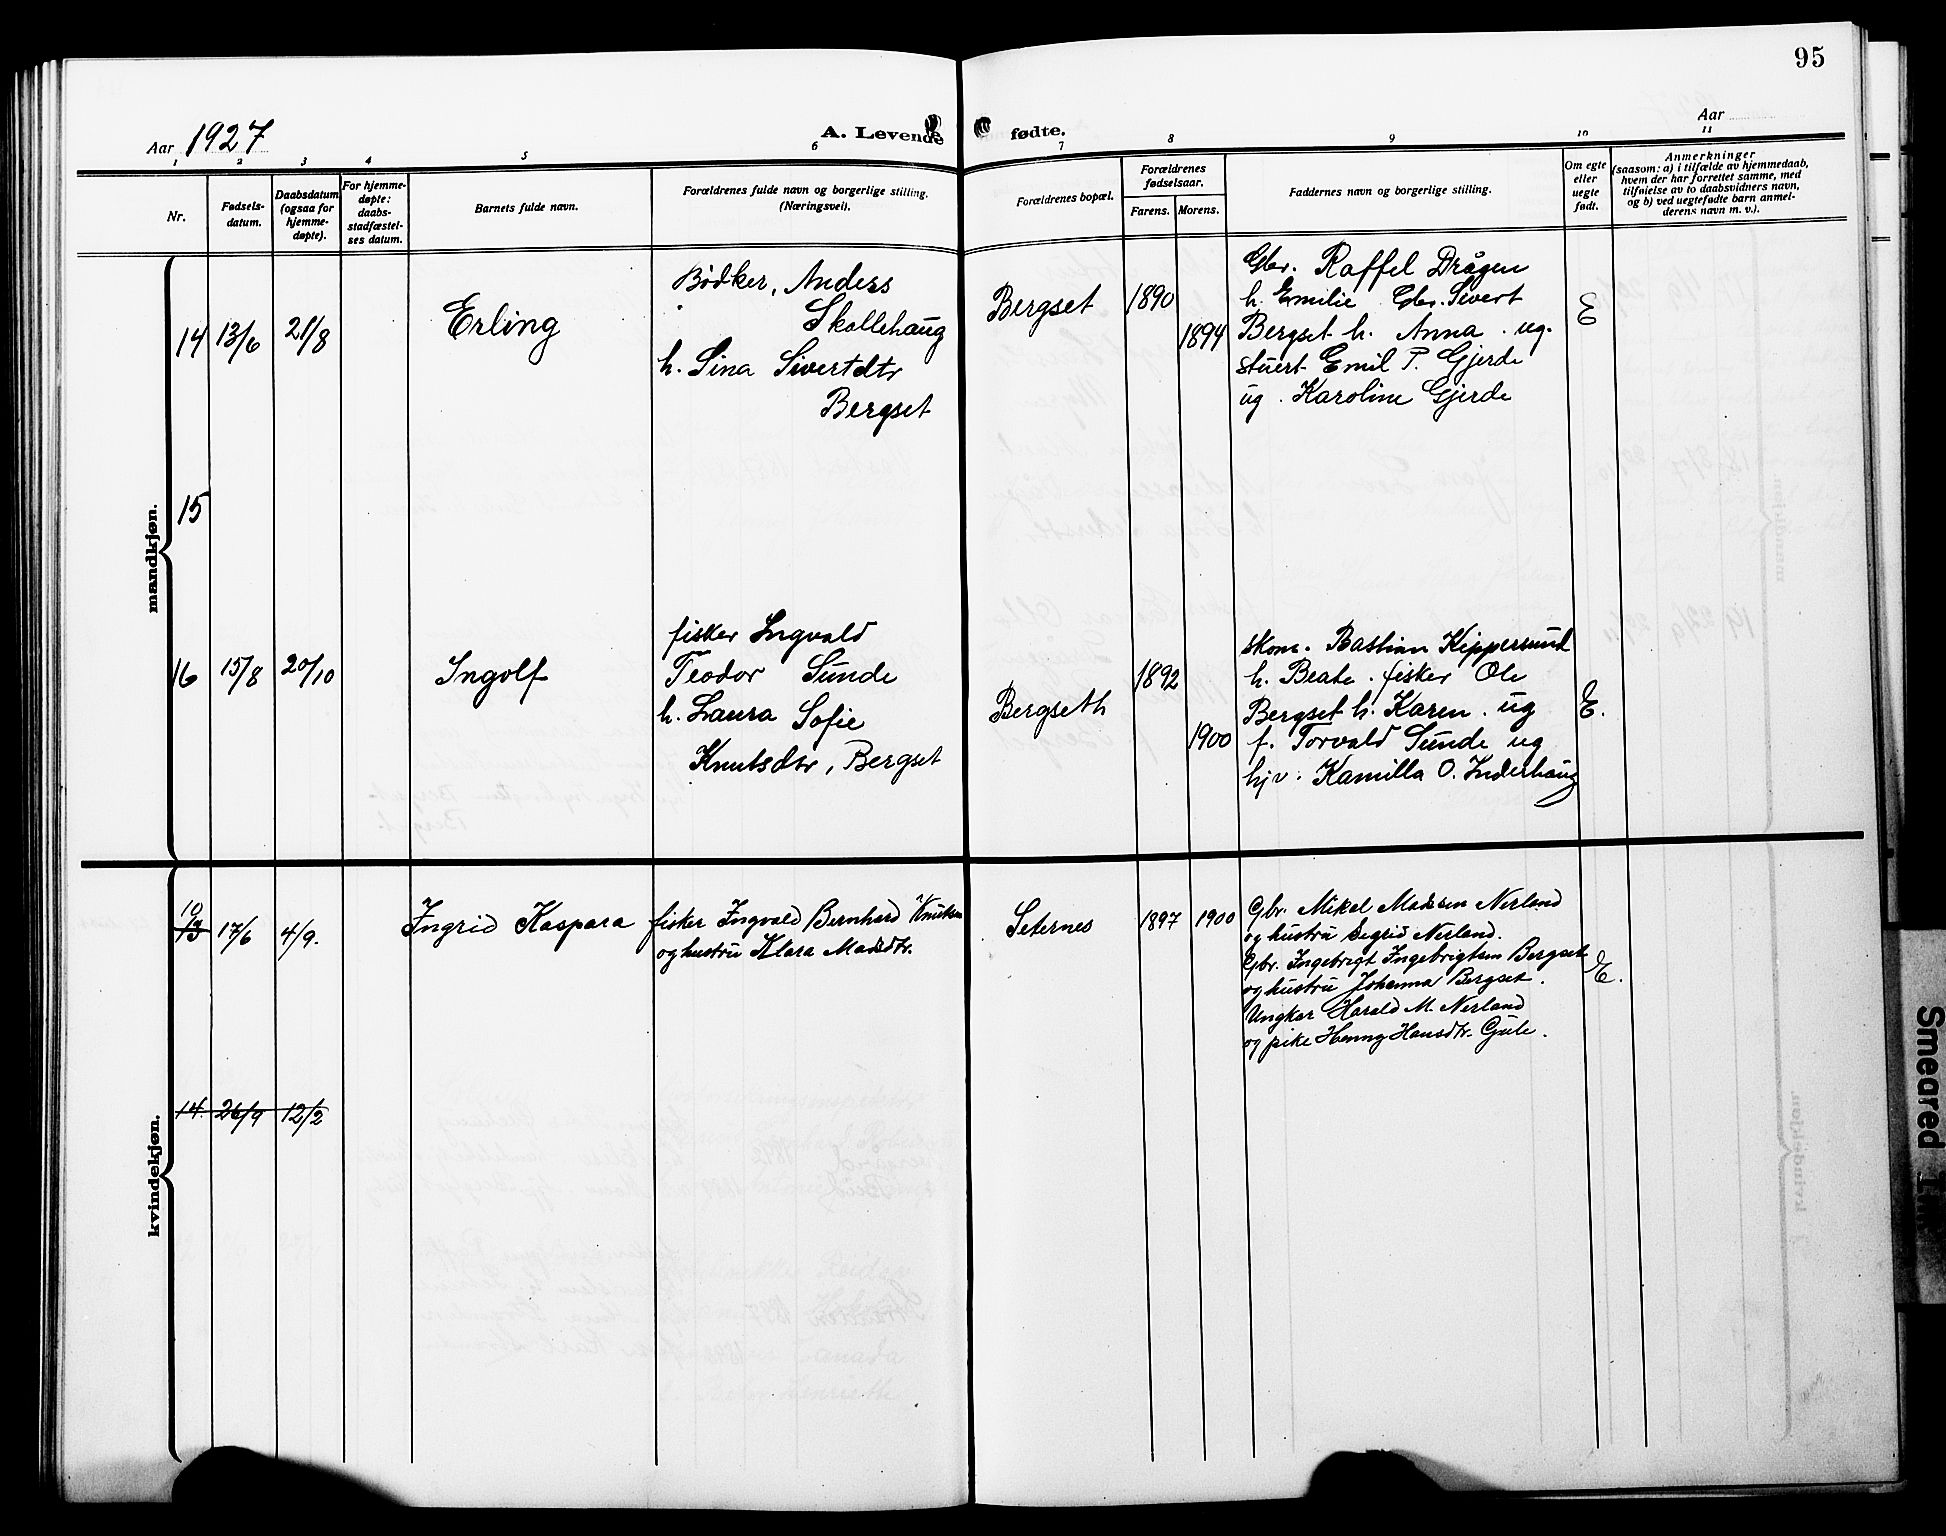 95
Aar 1927
A. Levende fødte.
Aar
1 2 3 4 5 6 7 8 9 10 11
Nr.
Fødsels-
datum.
Daabsdatum
(ogsaa for
hjemme-
døpte).
For hjemme-
døpte:
daabs-
stadfæstel-
ses datum.
Barnets fulde navn.
Forældrenes fulde navn og borgerlige stilling.
(Næringsvei).
Forældrenes bopæl.
Forældrenes
fødselsaar.
Farens. Morens.
Faddernes navn og borgerlige stilling.
Om egte
eller
uegte
født.
Anmerkninger
(saasom: a) i tilfælde av hjemmedaab,
hvem der har forrettet samme, med
tilføielse av to daabsvidners navn,
og b) ved uegtefødte barn anmel-
derens navn m. v.).
mandkjøn.
14 13/6 21/8
Erling
Bødker, Anders
Skollehaug
h. Sina Sivertdtr
Bergset
Bergset
1890
1894
Gbr. Raffel Drågen
h. Emilie. Gbr. Sivert
Bergset h. Anna. ug.
stuert Emil P. Gjerde
ug. Karoline Gjerde
E
15
16 15/8 20/10
Ingolf
fisker Ingvald
Teodor Sunde
h. Laura Sofie
Knutsdtr, Bergset
Bergseth
1892
1900
skom. Bastian Kippersund
h. Beate. fisker Ole
Bergset h. Karen. ug
f. Torvald Sunde ug
hjv. Kamilla O. Inderhaug
E.
kvindekjøn.
10
13 17/6 4/9.
Ingrid Kaspara
fisker Ingvald Bernhard Knutsen
og hustru Klara Madsdtr.
Seternes
1897 1900
Gbr. Mikal Madsen Nerland
og hustru Segrid Nerland.
Gbr. Ingebrigt Ingebrigtsen Bergset
og hustru Johanna Bergset.
Ungkar Harald M. Nerland
og pike Henny Hansdtr. Gule.
E.
14. 26/9 12/2
Smeared